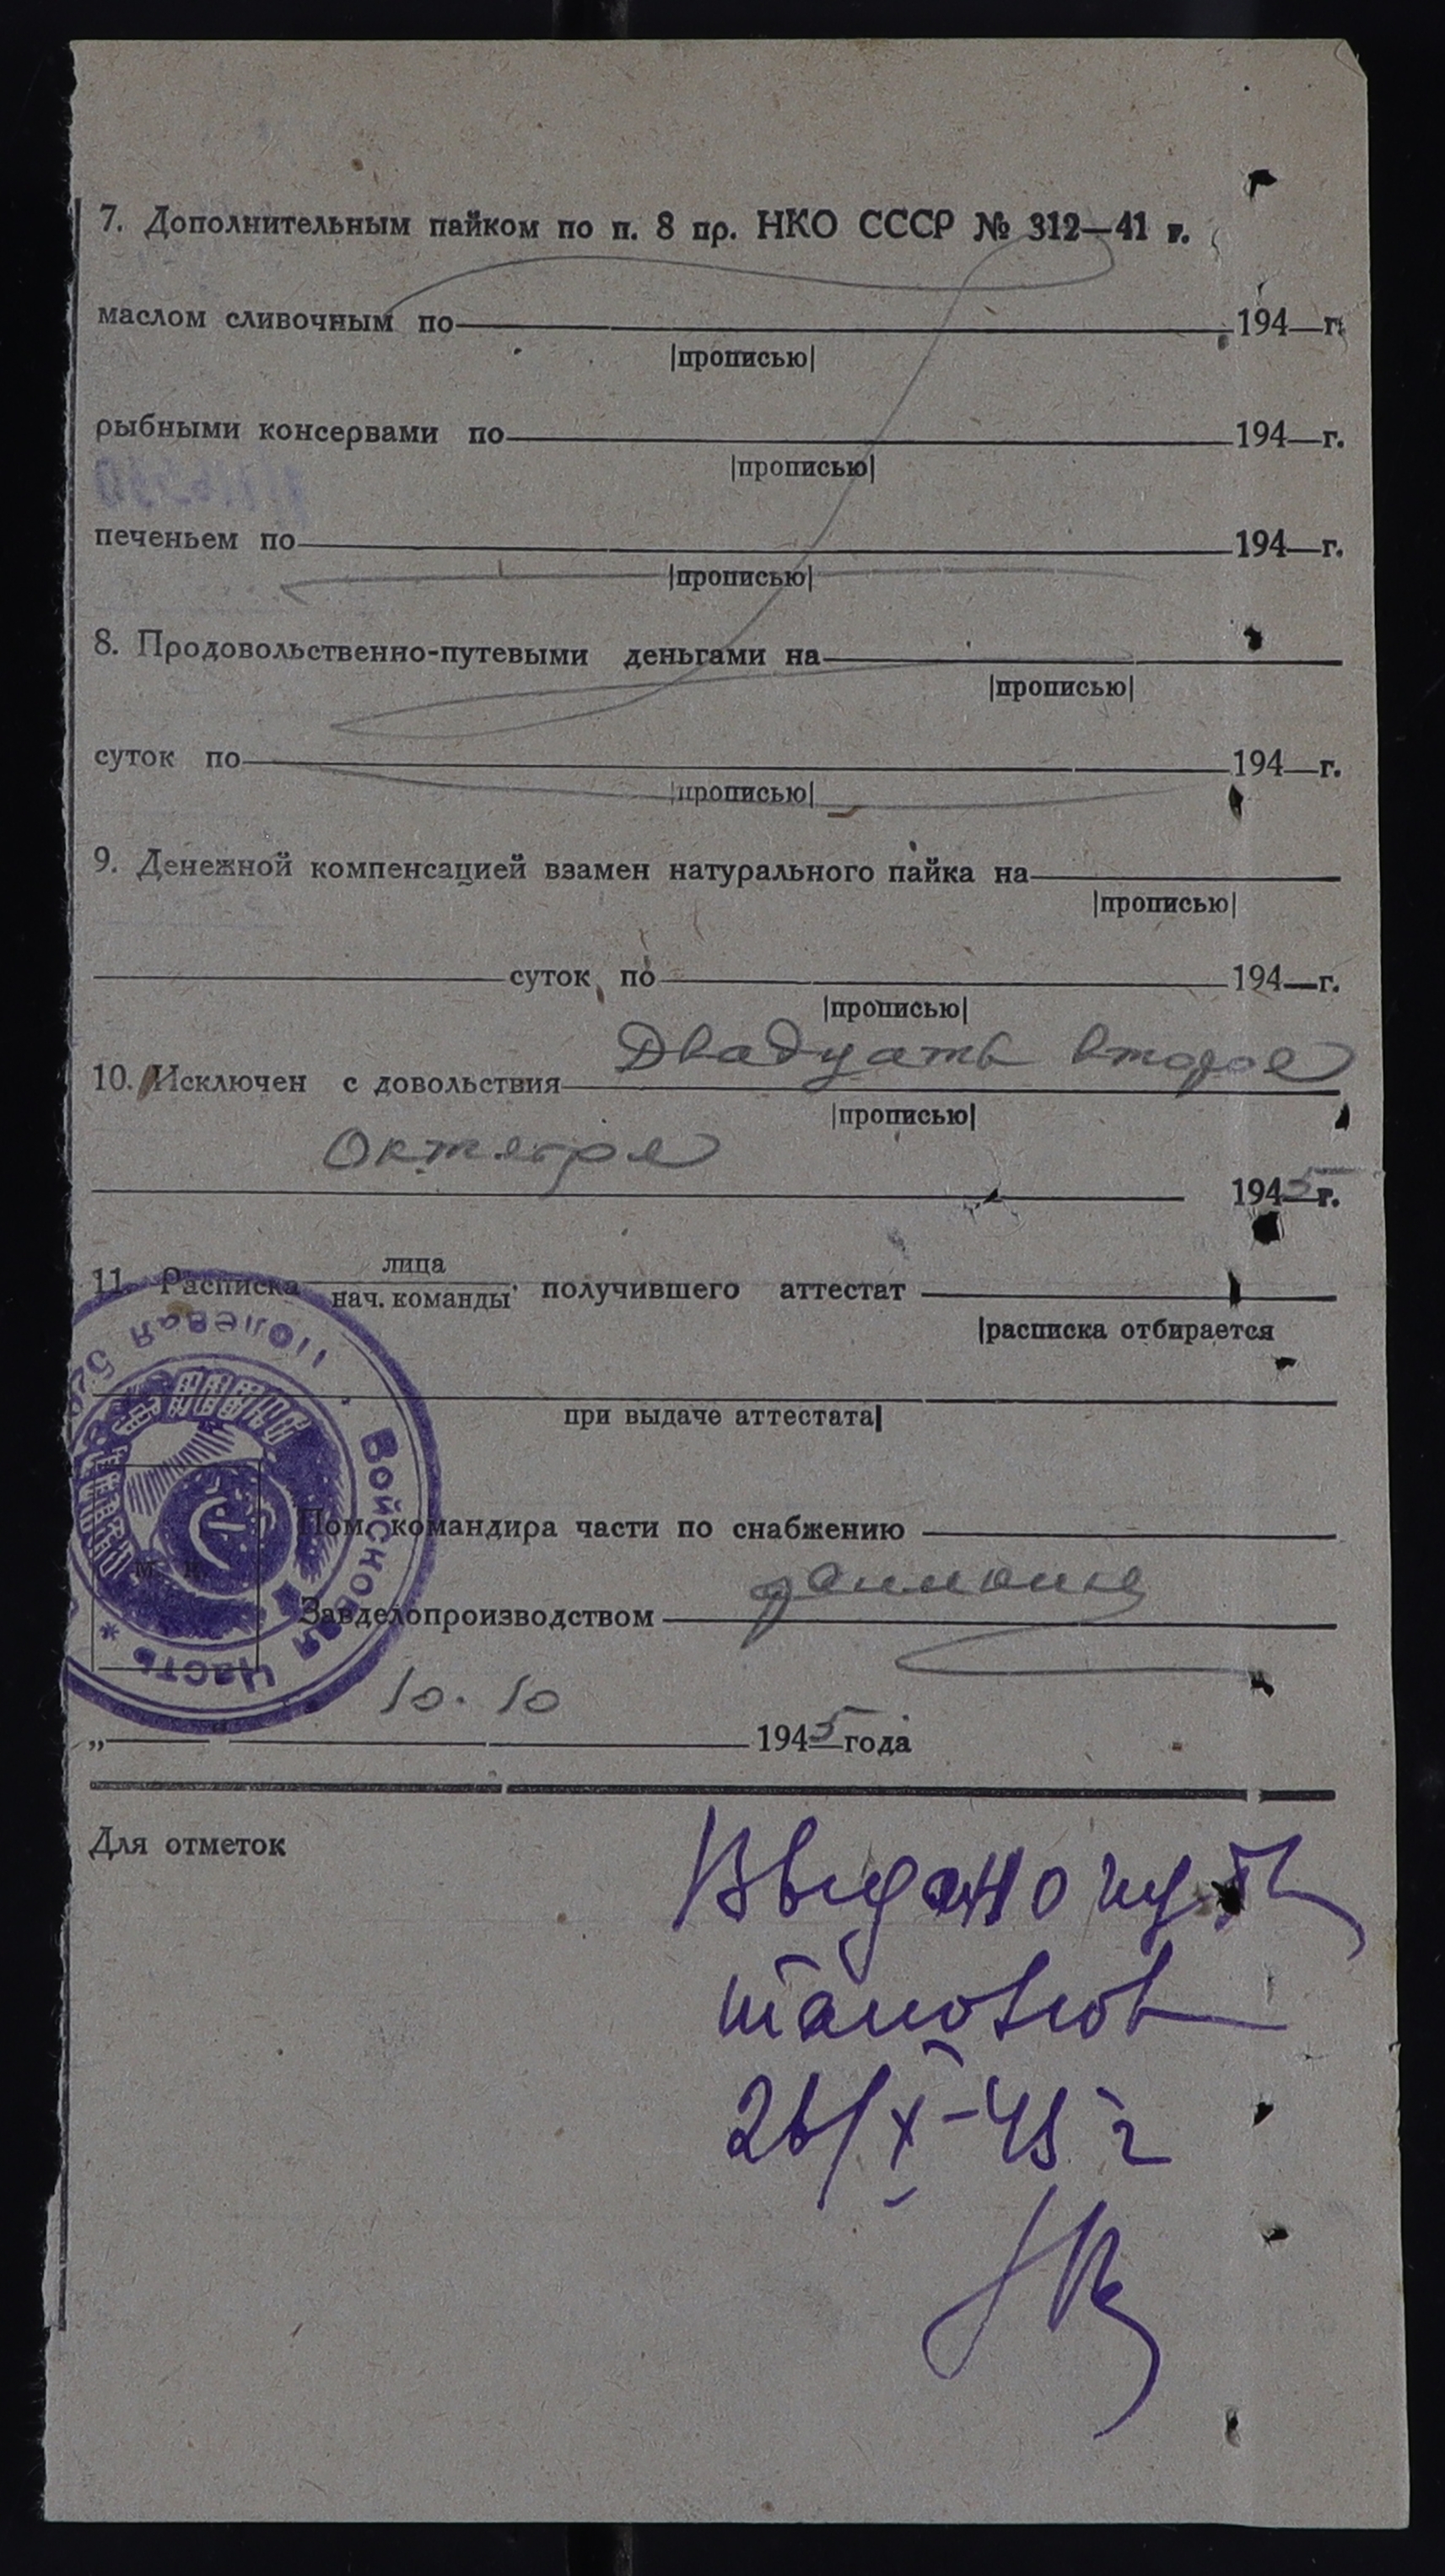 7. Дополнительным пайком по п. 8 пр. НКО СССР № 312—41 г.
маслом сливочным по 194 г.
|прописью|
рыбными консервами по 194 г.
|прописью|
печеньем по 194 г.
|прописью|
8. Продовольственно-путевыми деньгами на
|прописью|
суток по 194 г.
|прописью|
9. Денежной компенсацией взамен натурального пайка на
|прописью|
суток по 194 г.
|прописью|
Двадцать второе
10. Исключен с довольствия
|прописью|
Октября
1945 г.
лица
11. Расписка нач. команды получившего аттестат
|расписка отбирается
при выдаче аттестата|
Полевая
Войсковая часть *
Пом. командира части по снабжению
м. п.
Завделопроизводством
10. 10
„ 1945 года
Для отметок
Выдано
26/X-45 г